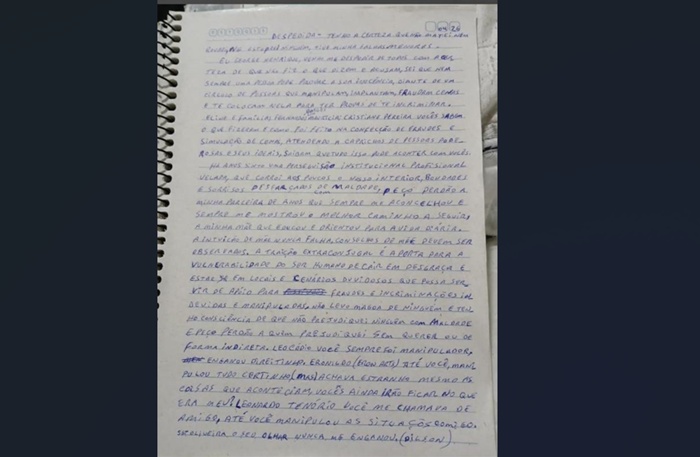 DESPEDIDA - TENHO A CERTEZA QUE NÃO MATEI NEM
EU
VENHO ME DESPEDIR DE TODOS COM A CER
TEZA DE QUE NÃO FIZ O QUE DIZEM O ACUSAM, SEI QUE NEM
SEMPRE UMA PESSOA PODE PROVAR A SUA INOCÊNCIA, DIANTE DE UM
CIRCULO DE PESSOAS QUE MANIPULAM, IMPLANTAM, FRAUDEM
E TE COLOCAM NELA PARA TER PROVAS DE TE INCRIMINAR.
CRISTIANO PEREIRA VOCÊS SABEM
O QUE FIZERAM E COMO FOI FEITO NA CONFECÇÃO DE FRAUDES E
SIMULAÇÃO DE CENA, ATENDENDO A CAPRICHOS DE PESSOAS PODE
ROSAS E SEUS IDEAIS, QUE TUDO ISSO PODE ACONTER COM VOCÊS.
HÁ ANOS SINTO UMA PERSEGUIÇÃO INSTITUCIONAL PROFISSIONAL
VELADA, QUE CORROI AOS POUCOS O NOSSO INTERIOR,
E SORRISOS DESFARÇADOS DE MALDADE, PEÇO PERDÃO A
MINHA PARCEIRA DE ANOS QUE SEMPRE ME ACONSELHOU E
SEMPRE ME MOSTROU O MELHOR CAMINHO A SEGUIR,
A MINHA MÃE QUE EDUCOU E ORIENTOU PARA A VIDA DIÁRIA.
A INTUIÇÃO DE MÃE NUNCA FALHA, CONSELHOS DE MÃE DEVEM SER
OBSERVADOS. A TRAIÇÃO EXTRACONJUGAL É A PORTA PARA A
VULNERABILIDADE DO SER HUMANO DE CAIR EM DESGRAÇA E
ESTAR EM LOCAIS E CENÁRIOS DUVIDOSOS QUE POSSA SER
VIR DE APOIO PARA FRAUDES E INCRIMINAÇÕES IN
DEVIDAS E MANIPULADAS. NÃO LEVO MAGOA DE NINGUÉM E TEN
HO CONSCIÊNCIA DE QUE NÃO PREJUDIQUEI NINGUÉM COM MALDADE
E PEÇO PERDÃO A QUEM PREJUDIQUEI SEM QUERER OU DE
FORMA INDIRETA. LEOCÁDIO VOCÊ SEMPRE FOI MANIPULADOR,
ENGANOU DIREITINHO. ERONILDO ATÉ VOCÊ, MANI
PULOU TUDO CERTINHO (MAS) ACHAVA ESTRANHO MESMO AS
COISAS QUE ACONTECIAM, VOCÊS AINDA IRÃO FICAR NO QUE
ERA MEU. LEONARDO TENÓRIO VOCÊ ME CHAMAVA DE
AMIGO, ATÉ VOCÊ MANIPULOU AS SITUAÇÕES COMIGO.
O SEU OLHAR NUNCA ME ENGANOU.